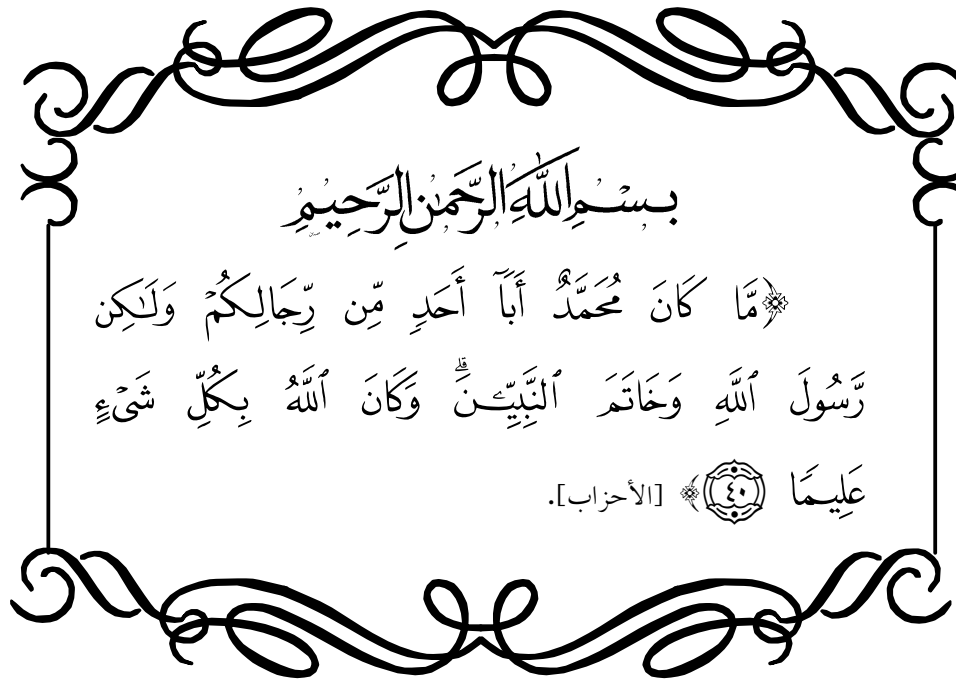 بِسْمِ اللَّهِ الرَّحْمَٰنِ الرَّحِيمِ
﴿مَّا كَانَ مُحَمَّدٌ أَبَآ أَحَدٖ مِّن رِّجَالِكُمۡ وَلَٰكِن
رَّسُولَ ٱللَّهِ وَخَاتَمَ ٱلنَّبِيِّـۧنَۗ وَكَانَ ٱللَّهُ بِكُلِّ شَيۡءٍ
عَلِيمٗا ٤٠﴾ [الأحزاب].